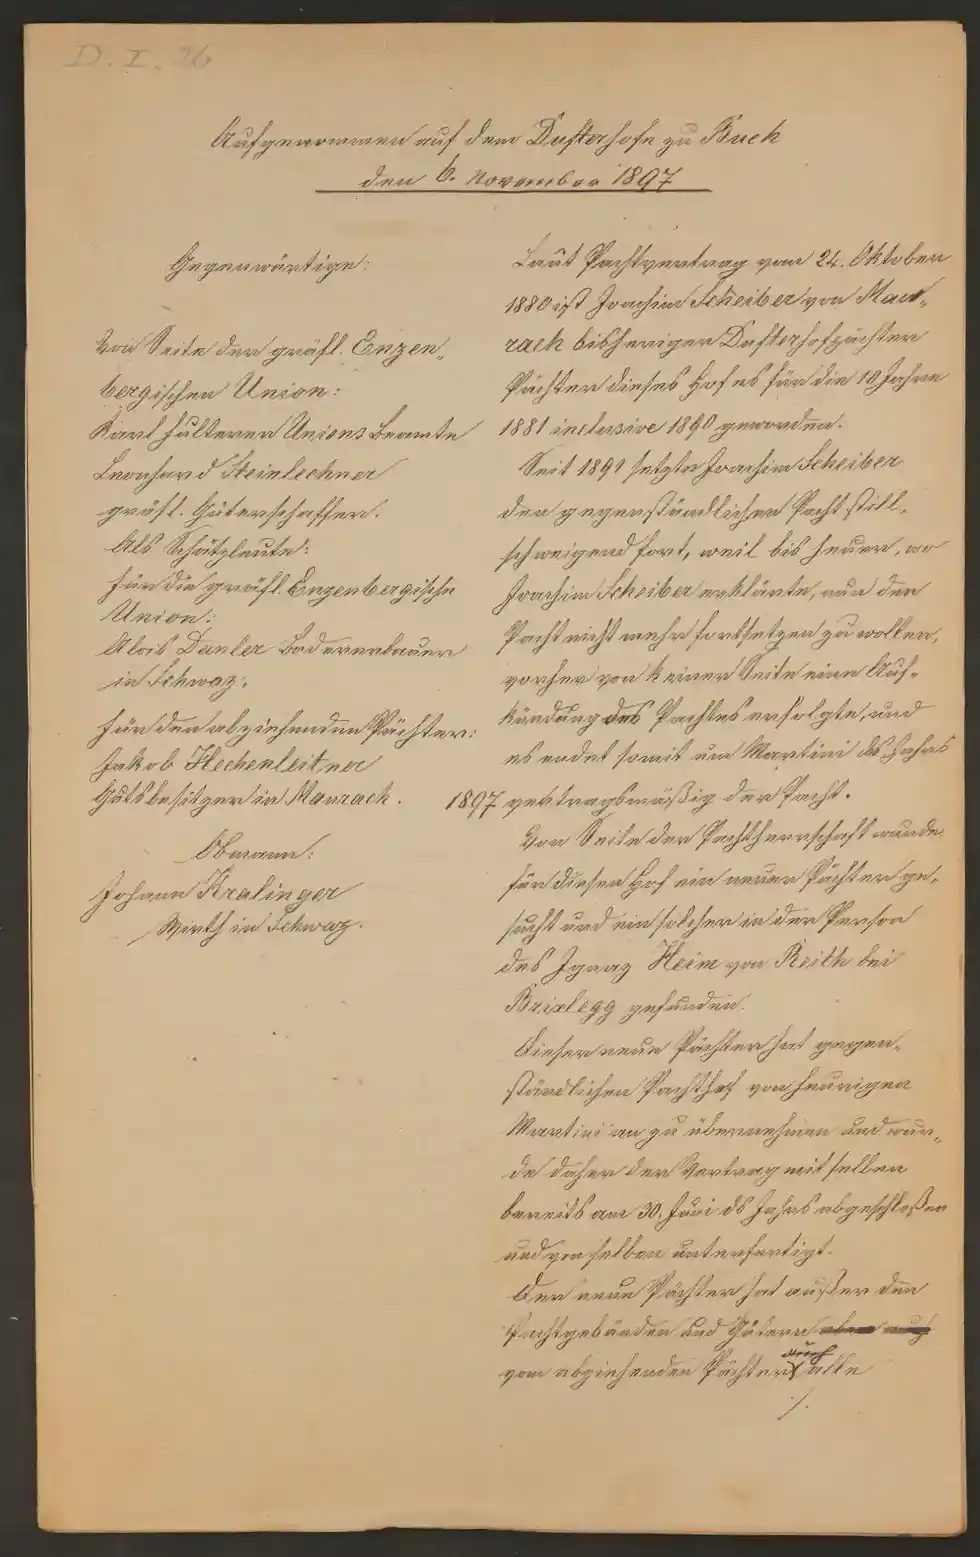 D. I. 26
Aufgenommen auf dem Dufterhofe zu Buch
den 6. November 1897
Gegenwärtige:
Von Seite der gräfl. Enzen„
bergischen Union:
Karl Hulterer Unions Beamte
Leonhard Steinlechner
gräfl. Güterschaffer.
Als Schätzleute:
für die gräfl. Enzenbergische
Union:
Alois Danler Badererbauer
in Schwaz.
für den abziehenden Pächter:
Jakob Hechenleitner
Gutsbesitzer in Maurach.
Obmann:
Johann Kralinger
Wirth in Schwaz.
Laut Pachtvertrag vom 24. Oktober
1880 ist Joachim Scheiber von Mau„
rach bisheriger Dufterhofpächter
Pächter dieses Hofes für die 10 Jahre
1881 inclusive 1890 geworden.
Seit 1891 setzte Joachim Scheiber
den gegenständlichen Pacht still„
schweigend fort, weil bis heuer, wo
Joachim Scheiber erklärte, nun den
Pacht nicht mehr fortsetzen zu wollen,
vorher von keiner Seite eine Auf„
kündung des Pachtes erfolgte, und
es endet somit um Martini ds. Jahrs
1897 vertragsmäßig der Pacht.
Von Seite der Pachtherrschaft wurde
für diesen Hof ein neuer Pächter ge„
sucht und ein solcher in der Person
des Ignaz Heim von Reith bei
Brixlegg gefunden.
Dieser neue Pächter hat gegen„
ständlichen Pachthof von heurigen
Martini an zu übernehmen und wur„
de daher der Vertrag mit selben
bereits am 30. Juni ds Jahrs abgeschloßen
und von selben unterfertigt.
Der neue Pächter hat außer den
Pachtgebäuden und Gütern aber auch
vom abziehenden Pächter auch alle
./.